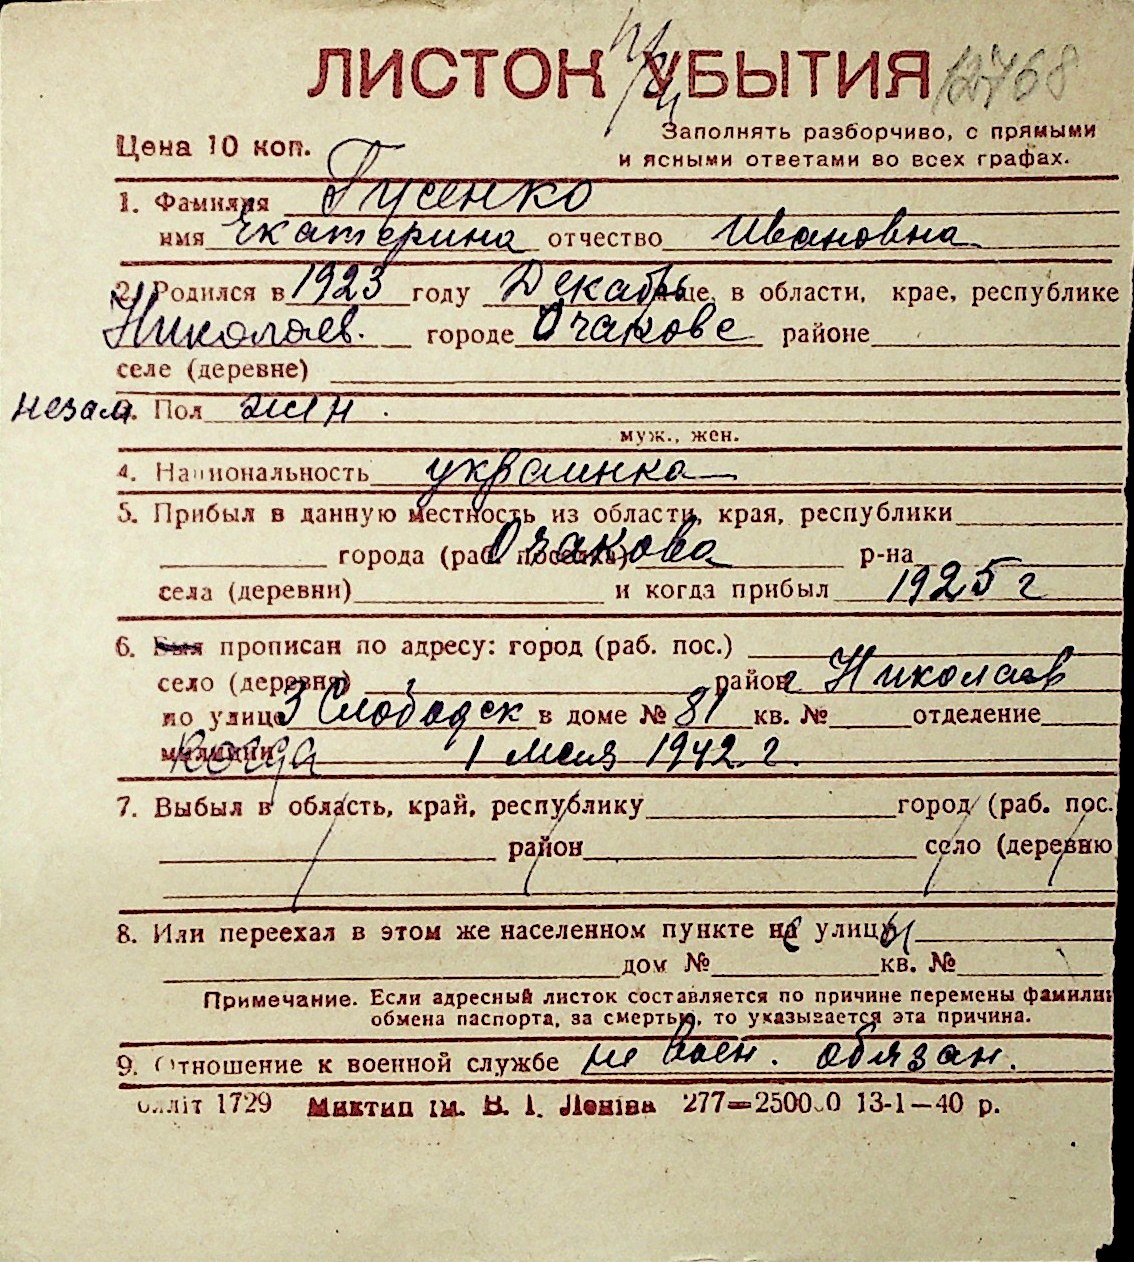 ЛИСТОК УБЫТИЯ 12768
Цена 10 коп. Заполнять разборчиво, с прямыми
и ясными ответами во всех графах.
1. Фамилия Гусенко
имя Екатерина отчество Ивановна
2. Родился в 1923 году Декабрь в области, крае, республике
Николаев. городе Очакове районе
селе (деревне)
незам. Пол жен.
муж., жен.
4. Национальность украинка
5. Прибыл в данную местность из области, края, республики
города (раб. поселка) Очакова р-на
села (деревни) и когда прибыл 1925 г
6. Был прописан по адресу: город (раб. пос.)
село (деревня) район г Николаев
по улице 3 Слободск в доме № 81 кв. № отделение
милиции Когда 1 мая 1942 г.
7. Выбыл в область, край, республику город (раб. пос.
район село (деревню
8. Или переехал в этом же населенном пункте на улицу
дом № кв. №
Примечание. Если адресный листок составляется по причине перемены фамилии
обмена паспорта, за смертью, то указывается эта причина.
9. Отношение к военной службе не воен. обязан.
1729 Миктип ім. В. І. Леніна 277=250000 13-1—40 р.